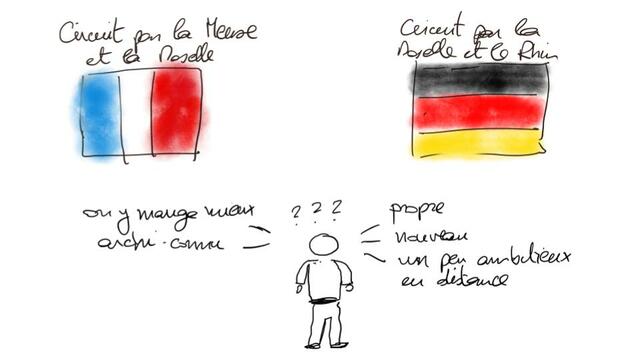 Circuit par la Meuse
et la Moselle
Circuit par la
Moselle et le Rhin
on y mange mieux
archi-connu
? ? ?
propre
nouveau
un peu ambitieux
en distance